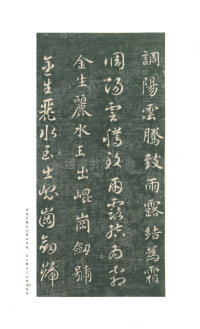 調陽雲騰致雨露結為霜
調陽雲騰致雨露結為霜
金生麗水玉出崐崗劒號
金生麗水玉出崐崗劒號